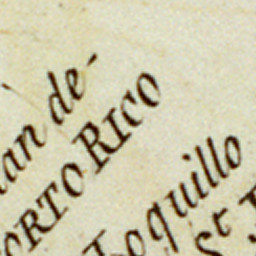 uan de-
orto Rico
Loquillo
St.